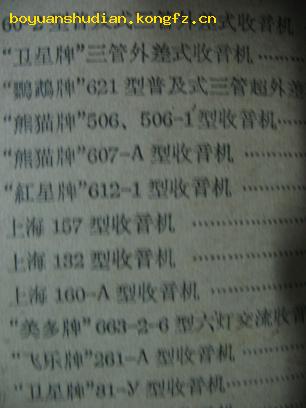 boyuanshudian.kongfz.cn
式收音机
“卫星牌”三管外差式收音机
“鹦鹉牌”621型普及式三管超外差
“熊猫牌”506、506-1型收音机············
“熊猫牌”607-A型收音机 ············
“紅星牌”612-1型收音机············
上海157型收音机 ············
上海132型收音机 ············
上海160-A型收音机 ············
“美多牌”663-2-6型六灯交流收音
“飞乐牌”261-A型收音机············
“卫星牌”81-У型收音机············